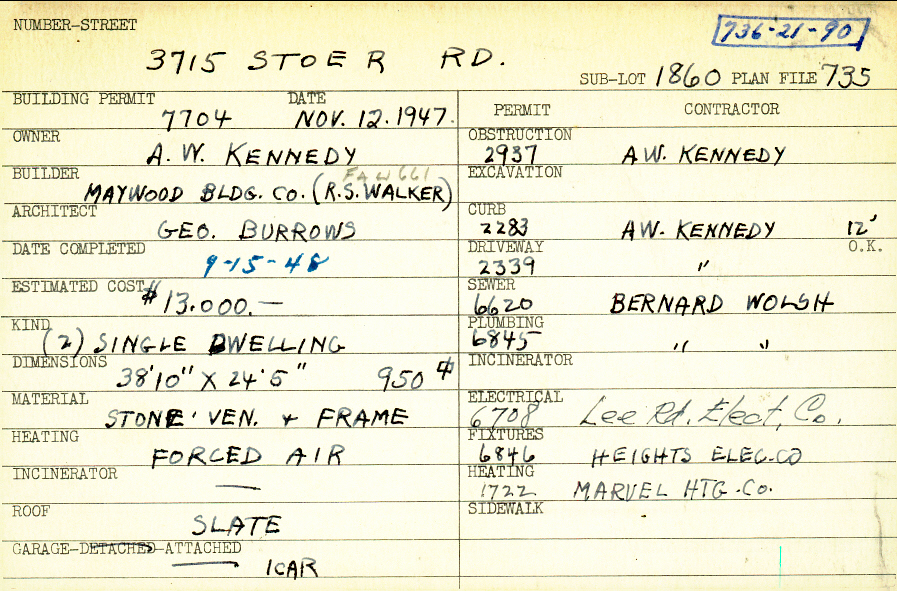 NUMBER-STREET
736-21-90
3715 STOER RD.
SUB-LOT 1860 PLAN FILE 735
BUILDING PERMIT DATE
7704 NOV. 12.1947.
OWNER
A. W. KENNEDY
BUILDER
MAYWOOD BLDG. CO. (R.S. WALKER)
ARCHITECT
GEO. BURROWS
DATE COMPLETED
9-15-48
ESTIMATED COST
$13.000.—
KIND
(2) SINGLE DWELLING
DIMENSIONS
38'10" X 24'5" 950
MATERIAL
STONE VEN. + FRAME
HEATING
FORCED AIR
INCINERATOR
—
ROOF
SLATE
GARAGE-DETACHED-ATTACHED
1CAR
PERMIT CONTRACTOR
OBSTRUCTION
2937 A.W. KENNEDY
EXCAVATION
CURB
2283 AW. KENNEDY 12'
DRIVEWAY O.K.
2339 "
SEWER
6620 BERNARD WOLSH
PLUMBING
6845 " "
INCINERATOR
ELECTRICAL
6708 Lee Rd. Elect. Co.
FIXTURES
6846 HEIGHTS ELEC.CO
HEATING
1722 MARVEL HTG.Co.
SIDEWALK